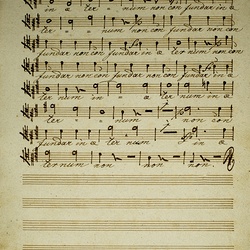 in æ ter num non con fundar in æ
ter - - num non con fundar non con
fundar non con fundar in æ ter num non con
fundar non con fundar non con fundar in æ
ter num in - æ - ter - -
ter - - num non con
fundar in æ ter num in æ
ter num non non non.